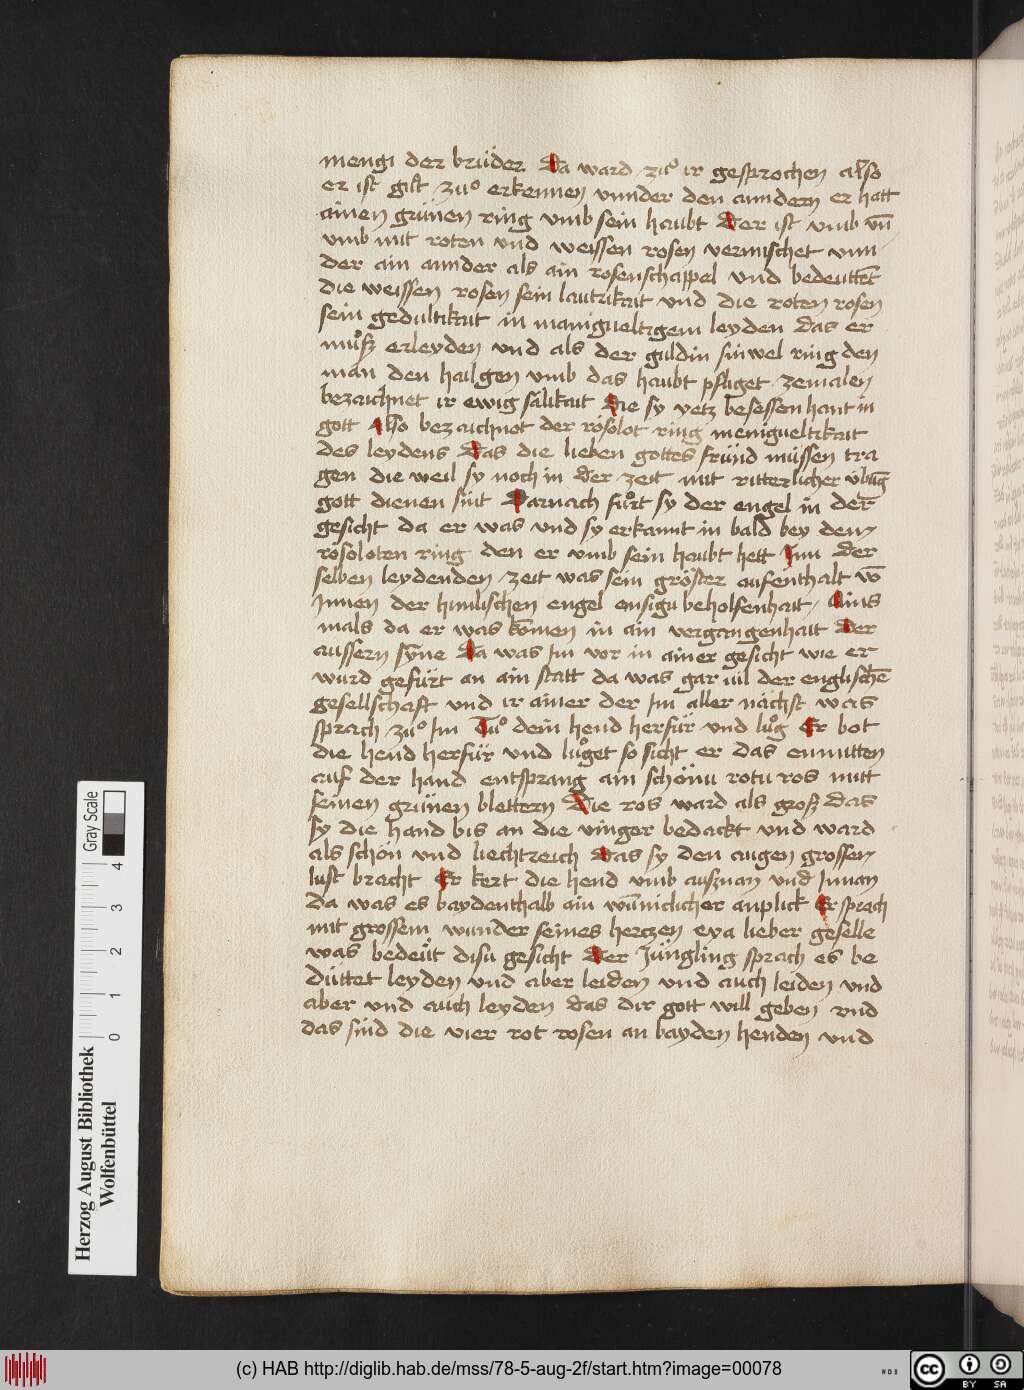 mengi der brüder Da ward zuͦ ir gesprochen also
er ist gůt zuͦ erkennen vnnder den anndern er hatt
ainen grünen ring vmb sein haubt Der ist vmb vn̄
vmb mit roten vnd weissen rosen vermischet vnn
der ain annder als ain rosenschappel vnd bedeuttēt
die weissen rosen sein lautrikait vnd die roten rosen
sein gedultikait in manigueltigem leyden das er
muͦß erleyden vnd als der guldin sinwel ring den
man den hailgen vmb das haubt pfliget zemalen
bezaichnet ir ewig sälikait Die sy yetz besessen hant in
gott Also bezaichnet der rösolot ring menigueltikait
des leydens Das die lieben gottes fründ müssen tra
gen die weil sy noch in der zeit mit ritterlicher übūg
gott dienen sint Darnach fuͦrt sy der engel in der
gesicht da er was vnd sy erkannt in bald bey dem
rösoloten ring den er vmb sein haubt hett Inn der
selben leydenden zeit was sein gröster aufenthalt vō
Innen der himlischen engel emsigu beholfenhait Ains
mals da er was komen in ain vergangenhait Der
aussern synne Da was Im vor in ainer gesicht wie er
wurd gefürt an ain statt da was gar uil der englischē
gesellschaft vnd ir ainer der Im aller nächst was
sprach zuͦ Im Tuͦ dein hend herfür vnd luͦg Er bot
die hend herfür vnd luͦget so sicht er das enmitten
auf der hand entsprang ain schönu rotu ros mitt
seinen grünen blettern Die ros ward als groß das
sy die hand bis an die vinger bedackt vnd ward
als schön vnd liechtreich Das sy den augen grossen
lust bracht Er kert die hend vmb auszuan vnd Innan
da was es baydenthalb ain wūnicklicher anplick Er sprach
mit grossem wunder seines hertzen eya lieber geselle
was bedeüt disu gesicht Der Jüngling sprach es be
düttet leyden vnd aber leiden vnd auch leiden vnd
aber vnd auch leyden das dir gott will geben vnd
das sind die vier rot rosen an bayden henden vnd
Gray Scale
0 1 2 3 4
Herzog August Bibliothek
Wolfenbüttel
(c) HAB http://diglib.hab.de/mss/78-5-aug-2f/start.htm?image=00078
WDB
cc BY SA